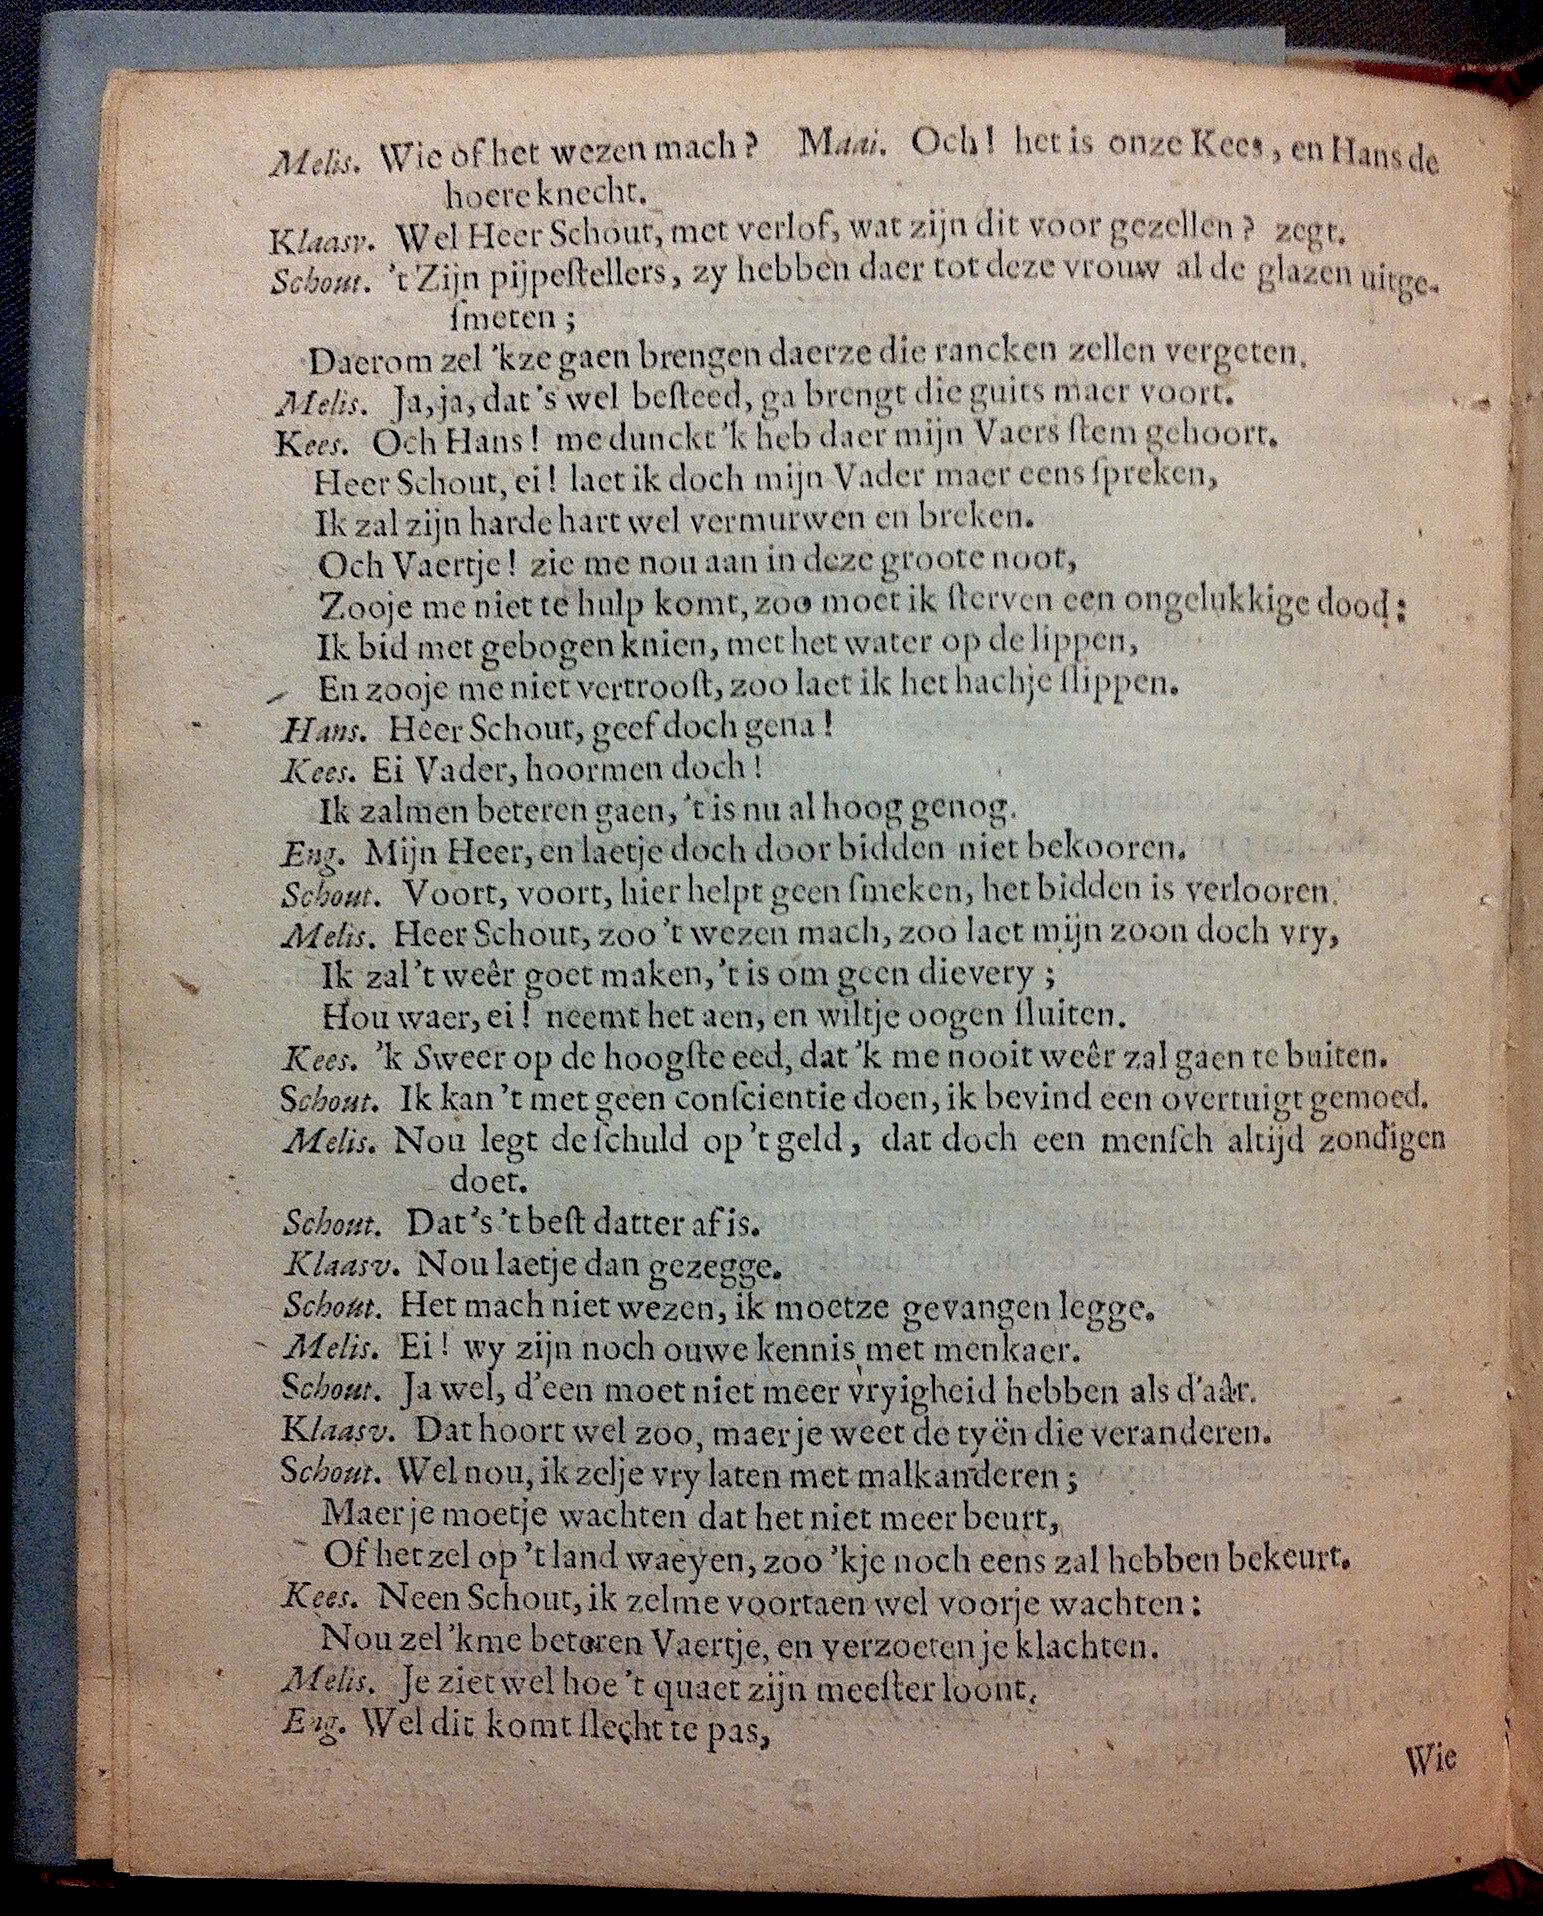 Melis. Wie of het wezen mach? Maai. Och! het is onze Kees, en Hans de
hoere knecht.
Klaasv. Wel Heer Schout, met verlof, wat zijn dit voor gezellen? zegt.
Schout. 't Zijn pijpeſtellers, zy hebben daer tot deze vrouw al de glazen uitge-
ſmeten;
Daerom zel 'kze gaen brengen daerze die rancken zellen vergeten.
Melis. Ja, ja, dat's wel beſteed, ga brengt die guits maer voort.
Kees. Och Hans! me dunckt 'k heb daer mijn Vaers ſtem gehoort.
Heer Schout, ei! laet ik doch mijn Vader maer eens ſpreken,
Ik zal zijn harde hart wel vermurwen en breken.
Och Vaertje! zie me nou aan in deze groote noot,
Zooje me niet te hulp komt, zoo moet ik ſterven een ongelukkige dood:
Ik bid met gebogen knien, met het water op de lippen,
En zooje me niet vertrooſt, zoo laet ik het hachje ſlippen.
Hans. Heer Schout, geef doch gena!
Kees. Ei Vader, hoormen doch!
Ik zalmen beteren gaen, 't is nu al hoog genog.
Eng. Mijn Heer, en laetje doch door bidden niet bekooren.
Schout. Voort, voort, hier helpt geen ſmeken, het bidden is verlooren.
Melis. Heer Schout, zoo 't wezen mach, zoo laet mijn zoon doch vry,
Ik zal 't weêr goet maken, 't is om geen dievery;
Hou waer, ei! neemt het aen, en wiltje oogen ſluiten.
Kees. 'k Sweer op de hoogſte eed, dat 'k me nooit weêr zal gaen te buiten.
Schout. Ik kan 't met geen conſcientie doen, ik bevind een overtuigt gemoed.
Melis. Nou legt de ſchuld op 't geld, dat doch een menſch altijd zondigen
doet.
Schout. Dat's 't beſt datter af is.
Klaasv. Nou laetje dan gezegge.
Schout. Het mach niet wezen, ik moetze gevangen legge.
Melis. Ei! wy zijn noch ouwe kennis met menkaer.
Schout. Ja wel, d'een moet niet meer vryigheid hebben als d'aâr.
Klaasv. Dat hoort wel zoo, maer je weet de tyën die veranderen.
Schout. Wel nou, ik zelje vry laten met malkanderen;
Maer je moetje wachten dat het niet meer beurt,
Of het zel op 't land waeyen, zoo 'kje noch eens zal hebben bekeurt.
Kees. Neen Schout, ik zelme voortaen wel voorje wachten:
Nou zel 'kme beteren Vaertje, en verzoeten je klachten.
Melis. Je ziet wel hoe 't quaet zijn meeſter loont.
Eng. Wel dit komt ſlecht te pas,
Wie